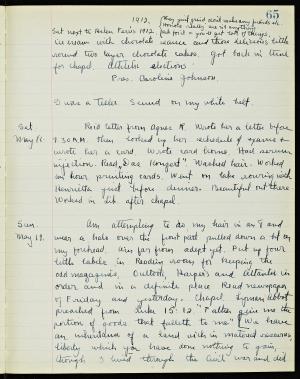 1912.
65
Sat next to Helen Paris 1912
ice cream with chocolate sauce and those delicious little
round two layer chocolate cakes. Got back in time
for chapel. Athletic elections.
Pres. Caroline Johnson
I was a Teller. Sewed on my white belt.
Sat.
May
Had letter from Agnes R. Wrote her a letter before
9:30 A.M. Then looked up her schedule of exams &
wrote her a card. Wrote card home. Had serum
injection. Read "Das Konzert". Washed hair. Worked
an hour printing cards. Went on lake rowing with
Henrietta just before dinner. Beautiful out there
Worked in lib after chapel.
Sun.
May 19.
Am attempting to do my hair in an 8 and
wear a halo over the front part pulled down a bit on
my forehead. Am far from adept yet. Put up four
little labels in Reading room for keeping the
old magazines, Outlook, Harper's and Atlantic in
order and in a definite place. Read newspaper
of Friday and yesterday. Chapel. Lyman Abbott
preached from Luke 15:12 "Father give me the
portion of goods that falleth to me." We have
an inheritance of a land with material resources
liberty which you have done nothing to gain,
though I lived through the Civil war and did